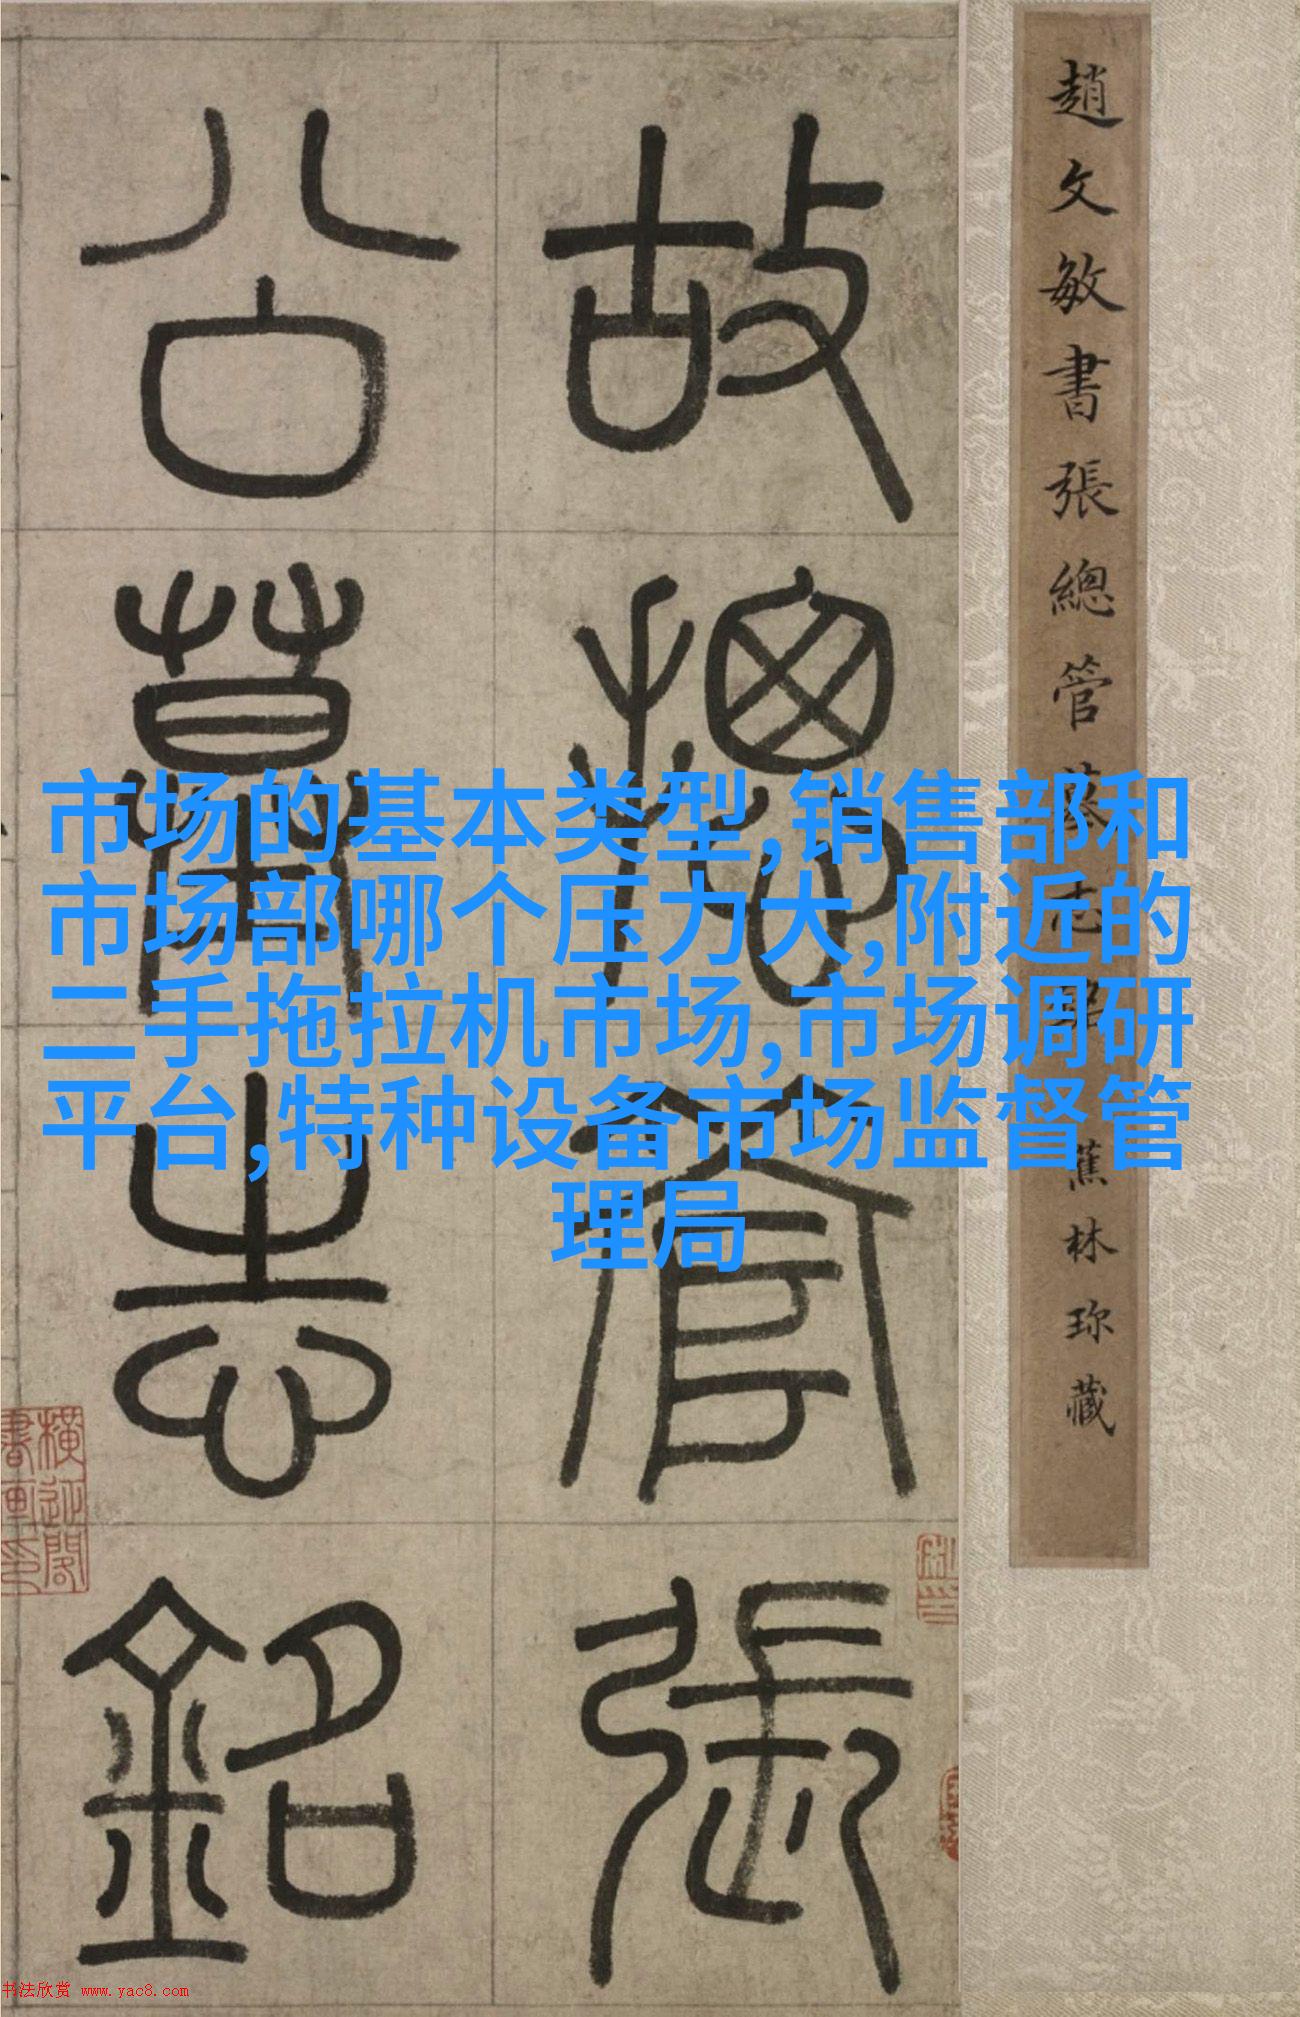 趙文敏書張總管墓志銘 蕉林珍藏
故總管張
公墓志銘
市场的基本类型,销售部和
市场部哪个压力大,附近的
二手拖拉机市场,市场调研
平台,特种设备市场监督管
理局
书法欣赏 www.yac8.com